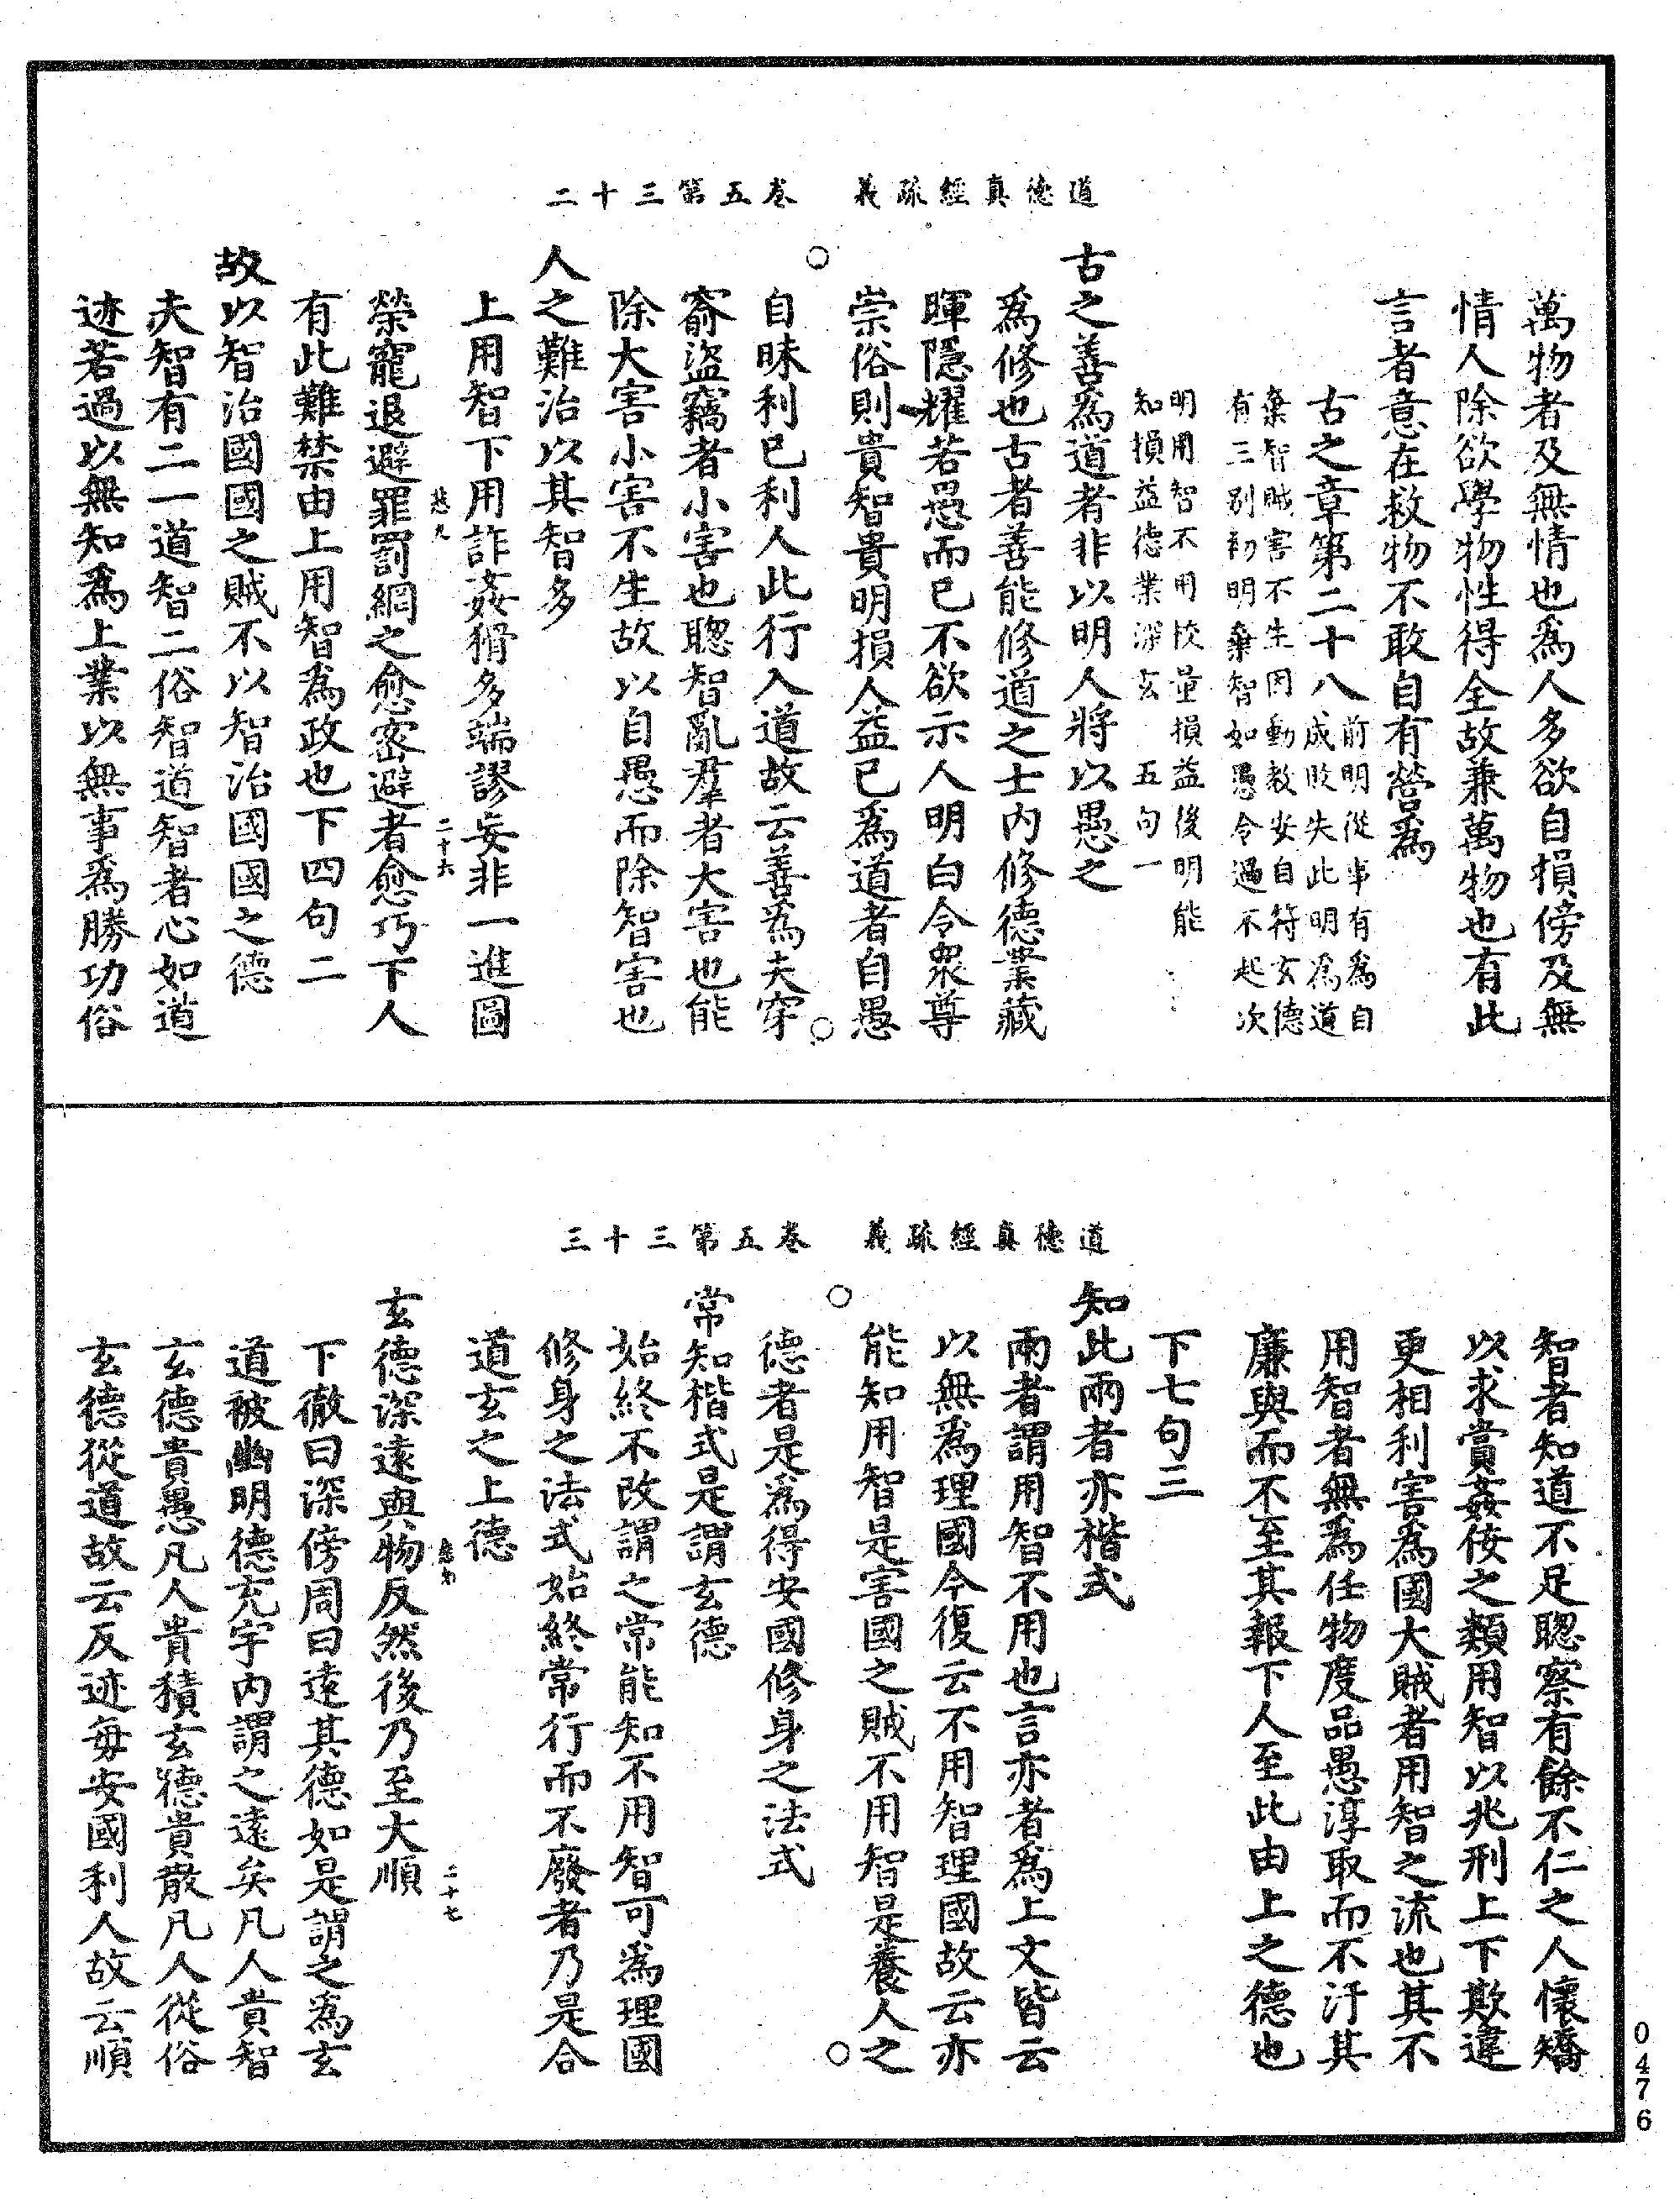 道德真經疏義　卷五第三十二
萬物者及無情也爲人多欲自損傍及無
情人除欲學物性得全故兼萬物也有此
言者意在救物不敢自有營爲
古之章第二十八前明從事有為自
成敗失此明為道
棄智賊害不生因動教安自符玄德
有三別初明棄智如愚令過不起次
明用智不用校量損益後明能
知損益德業深玄　五句一
古之善為道者非以明人將以愚之
爲修也古者善能修道之士內修德業藏
暉隱耀若愚而已不欲示人明白令衆尊
崇俗則貴智貴明損人益已爲道者自愚
自昧利已利人此行入道故云善為夫穿
窬盜竊者小害也聰智亂羣者大害也能
除大害小害不生故以自愚而除智害也
人之難治以其智多
上用智下用詐姦猾多端謬妄非一進圖
榮寵退避罪罰網之愈密避者愈巧下人
有此難禁由上用智為政也下四句二
故以智治國國之賊不以智治國國之德
夫智有二一道智二俗智道智者心如道
迹若過以無知爲上業以無事爲勝功俗
二十六
道德真經疏義　卷五第三十三
智者知道不足聰察有餘不仁之人懷矯
以求賞姦佞之類用智以兆刑上下欺違
更相利害爲國大賊者用智之流也其不
用智者無爲任物度品愚淳取而不汙其
廉與而不至其報下人至此由上之德也
下七句三
知此兩者亦楷式
兩者謂用智不用也言亦者爲上文皆云
以無爲理國今復云不用智理國故云亦
能知用智是害國之賊不用智是養人之
德者是爲得安國修身之法式
常知楷式是謂玄德
始終不改謂之常能知不用智可爲理國
修身之法式始終常行而不廢者乃是合
道玄之上德
玄德深遠與物反然後乃至大順
下徹曰深傍周曰遠其德如是謂之爲玄
道被幽明德充宇內謂之遠矣凡人貴智
玄德貴愚凡人貴積玄德貴散凡人從俗
玄德從道故云反迹每安國利人故云順
二十七
0476